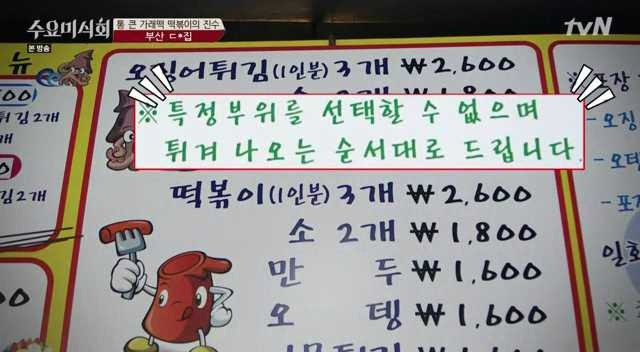 수요미식회
본 방송
통 큰 가래떡 떡볶이의 진수
부산 ㄷ*집
tvN
뉴
오징어튀김(1인분) 3개 ₩2,600
※특정부위를 선택할 수 없으며
튀겨 나오는 순서대로 드립니다.
튀김 2개
2개
떡볶이(1인분) 3개 ₩2,600
소 2개 ₩1,800
만 두 ₩1,600
오 뎅 ₩1,600
※포장
-오징
-오
-포
일회